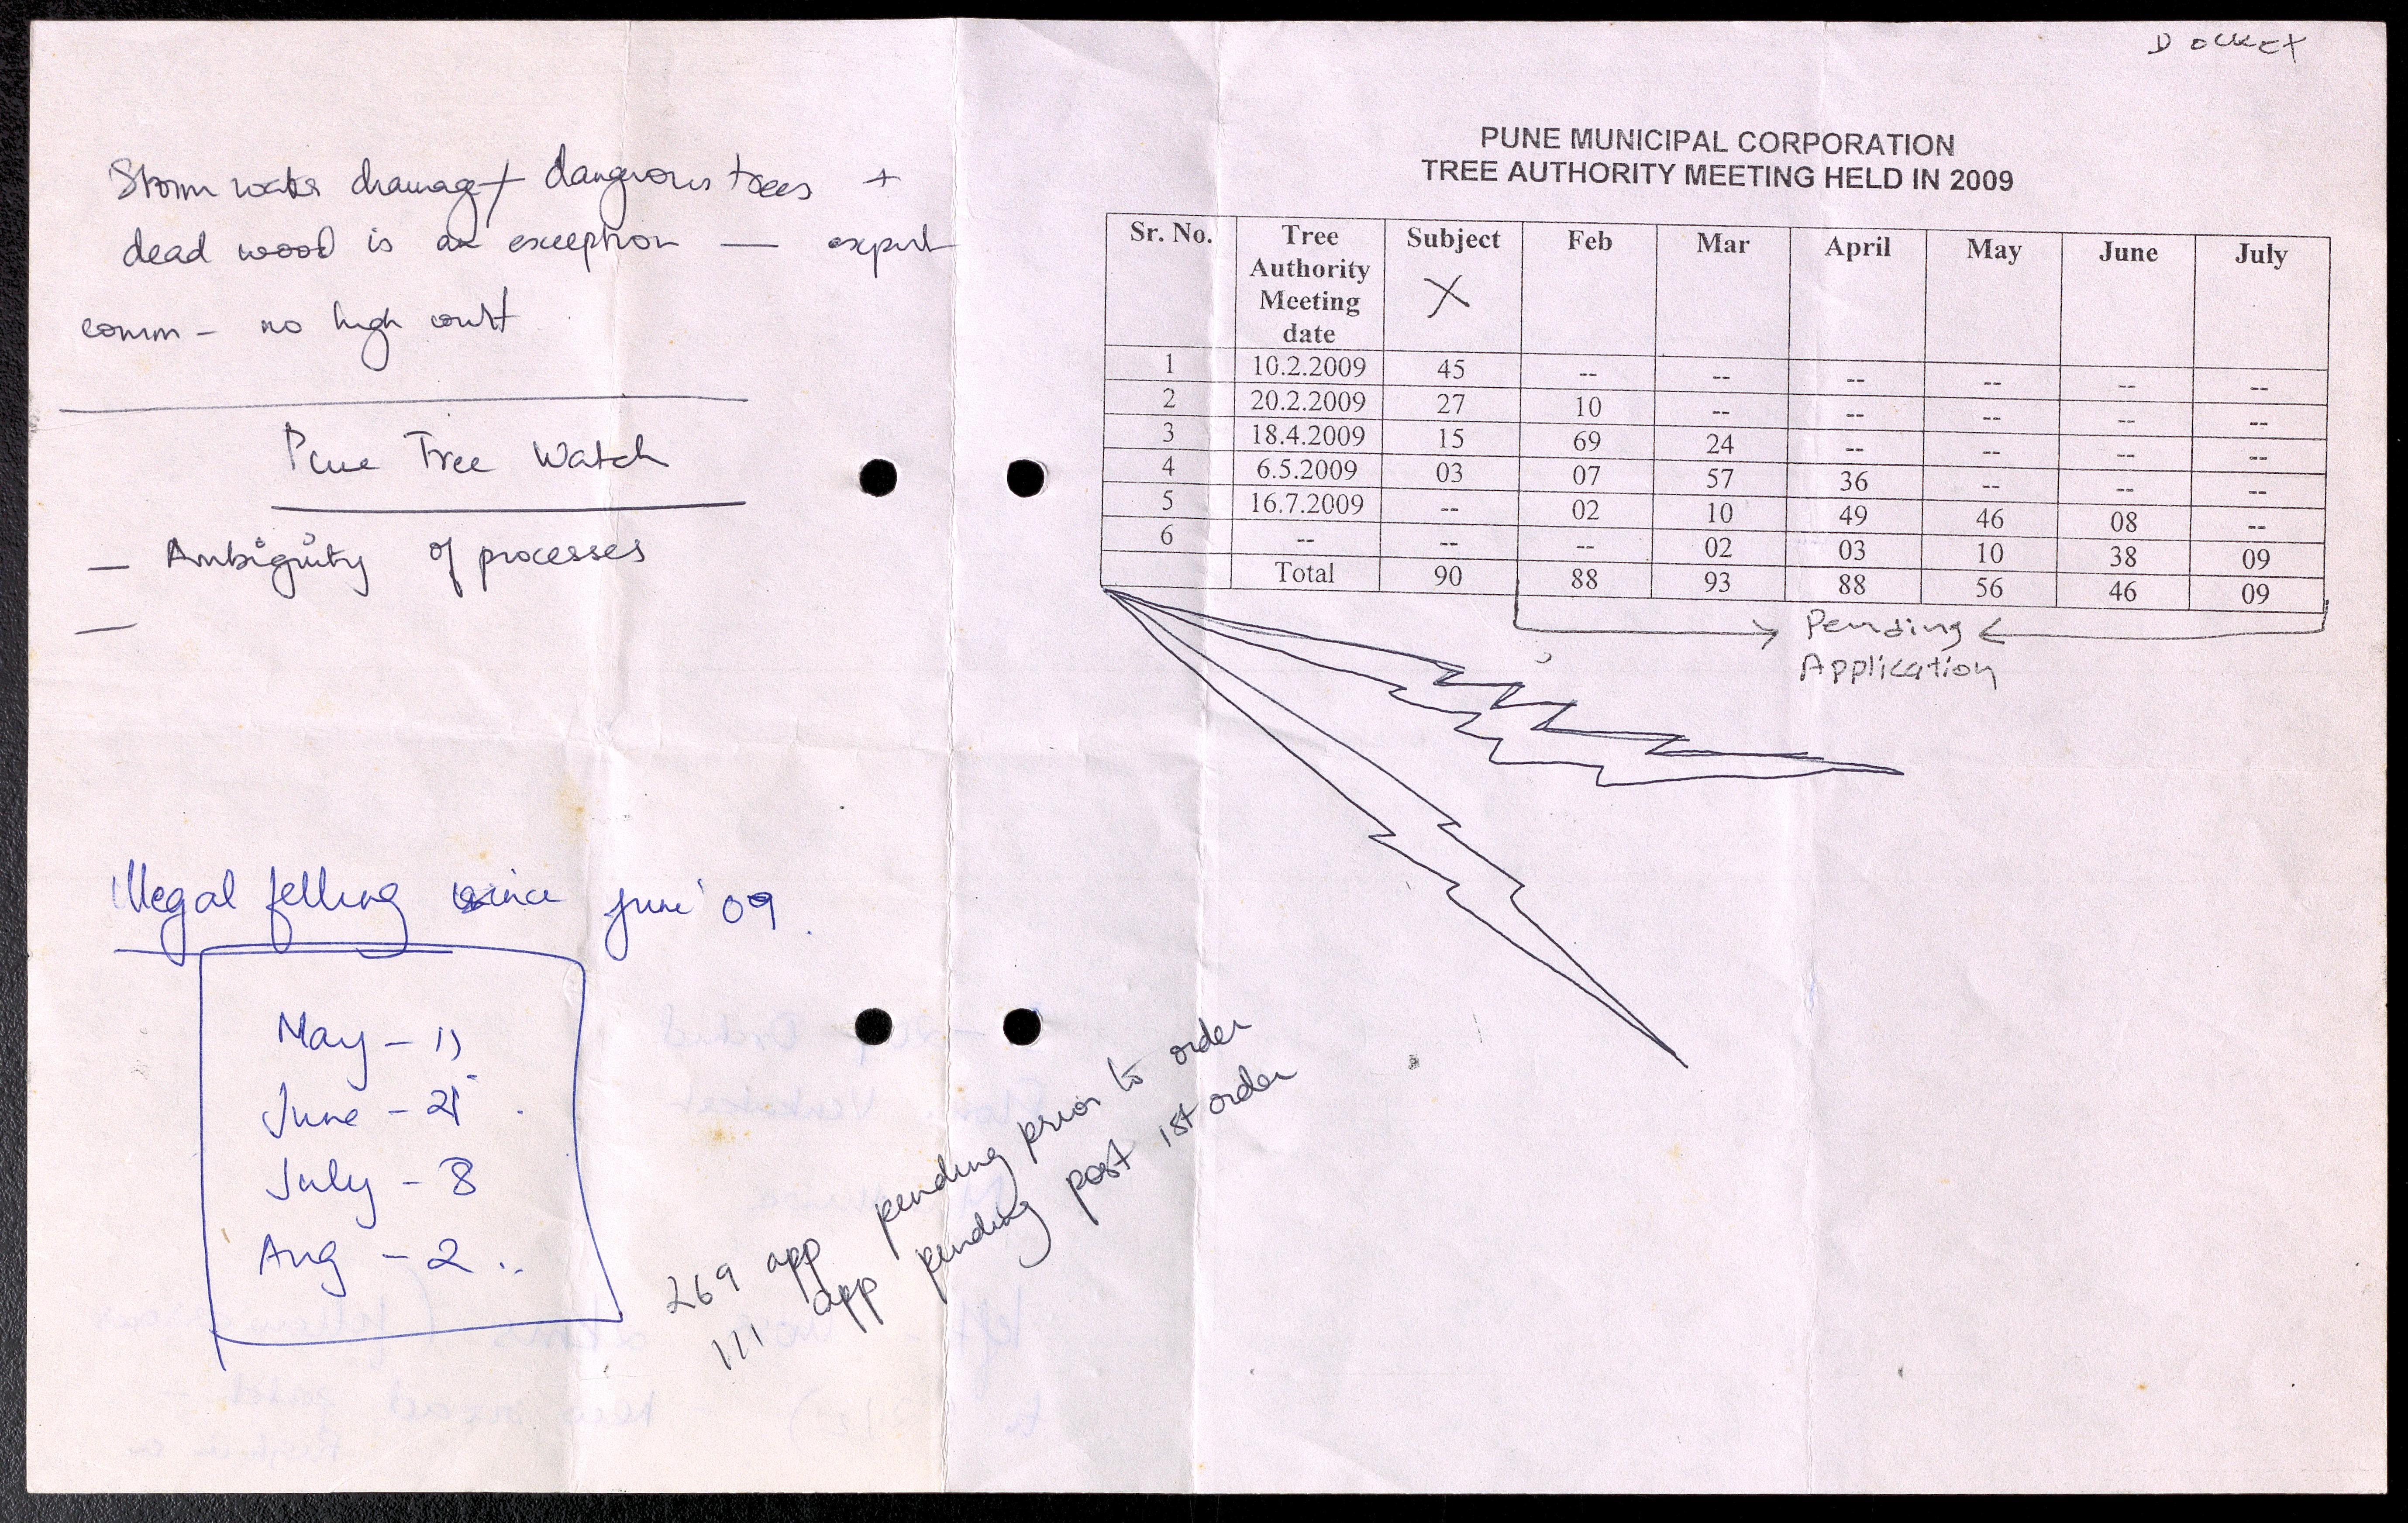 Storm water drainage + dangerous trees +
dead wood is an exception — expert
comm – no high court
Pune Tree Watch
— Ambiguity of processes
—
Illegal felling since June '09.
May – 11
June – 21
July – 8
Aug – 2 ..
269 app pending prior to order
111 app pending post 1st order
DOCKET
PUNE MUNICIPAL CORPORATION
TREE AUTHORITY MEETING HELD IN 2009
Sr. No. Tree Authority Meeting date Subject Feb Mar April May June July
X
1 10.2.2009 45 -- -- -- -- -- --
2 20.2.2009 27 10 -- -- -- -- --
3 18.4.2009 15 69 24 -- -- -- --
4 6.5.2009 03 07 57 36 -- -- --
5 16.7.2009 -- 02 10 49 46 08 --
6 -- -- -- 02 03 10 38 09
Total 90 88 93 88 56 46 09
Pending
Application